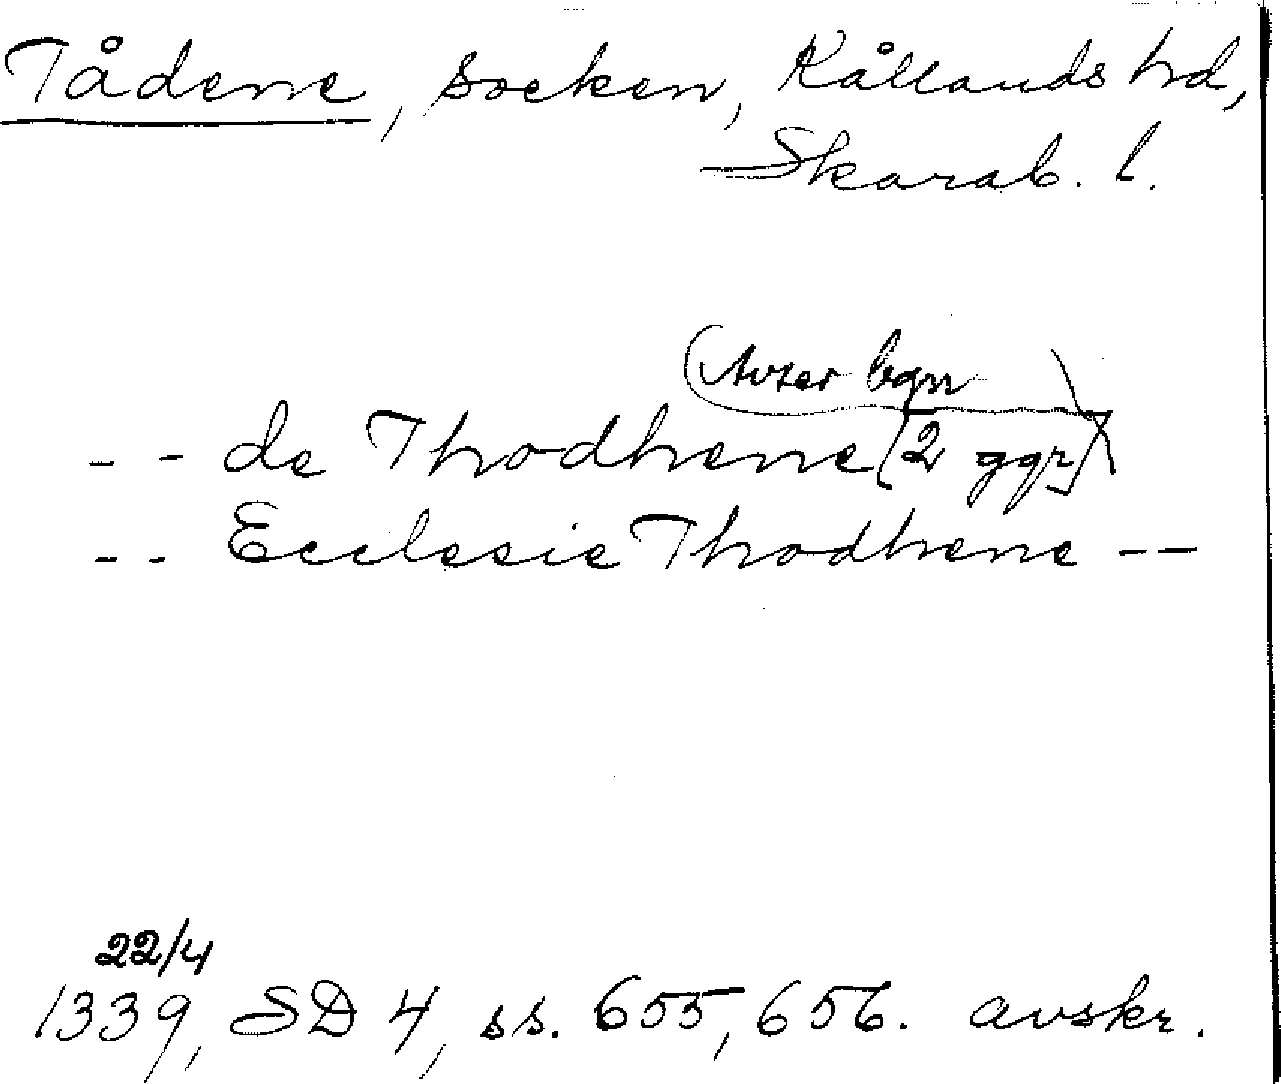 Tådene, socken, Kållands hd,
Skarab. l.
(avser bgn)
-- de Thodhene [2 ggr]
-- Ecclesie Thodhene --
22/4
1339, SD 4, ss. 655, 656. avskr.